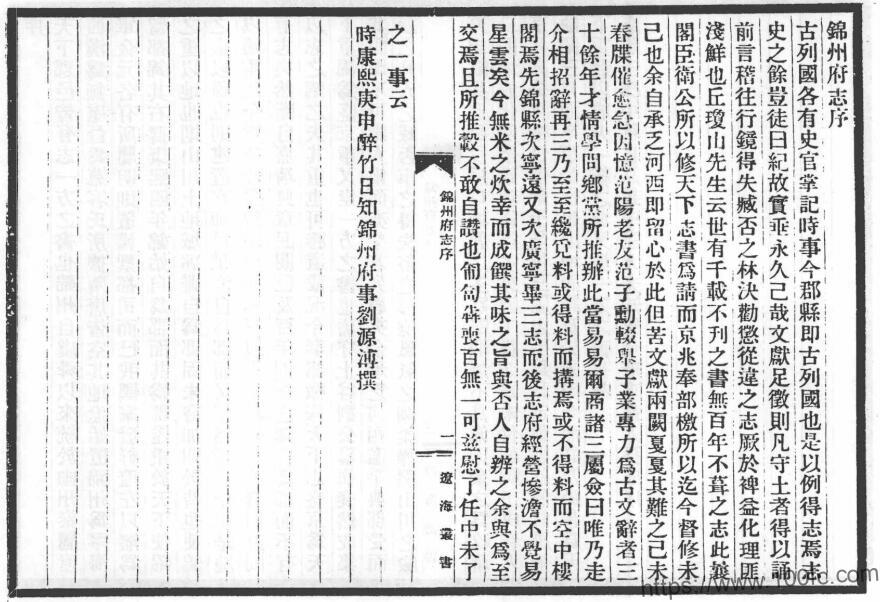 錦州府志序
古列國各有史官掌記時事今郡縣即古列國也是以例得志焉志
史之餘豈徒曰紀故實垂永久己哉文獻足徵則凡守土者得以誦
前言稽往行鏡得失臧否之林決勸懲從違之志厥於裨益化理匪
淺鮮也丘瓊山先生云世有千載不刊之書無百年不葺之志此曩
閣臣衛公所以修天下志書爲請而京兆奉部檄所以迄今督修未
己也余自承乏河西即留心於此但苦文獻兩闕戛戛其難之己未
春牒催愈急因憶范陽老友范子勳輟舉子業專力爲古文辭者三
十餘年才情學問鄉黨所推辦此當易易爾商諸三屬僉曰唯乃走
介相招辭再三乃至至纔覓料或得料而搆焉或不得料而空中樓
閣焉先錦縣次寧遠又次廣寧畢三志而後志府經營慘澹不覺易
星雲矣今無米之炊幸而成饌其味之旨與否人自辨之余與爲至
交焉且所推轂不敢自讚也匍匐犇喪百無一可茲慰了任中未了
錦州府志序
一
遼海叢書
之一事云
時康熙庚申醉竹日知錦州府事劉源溥撰
https://www.100fc.com